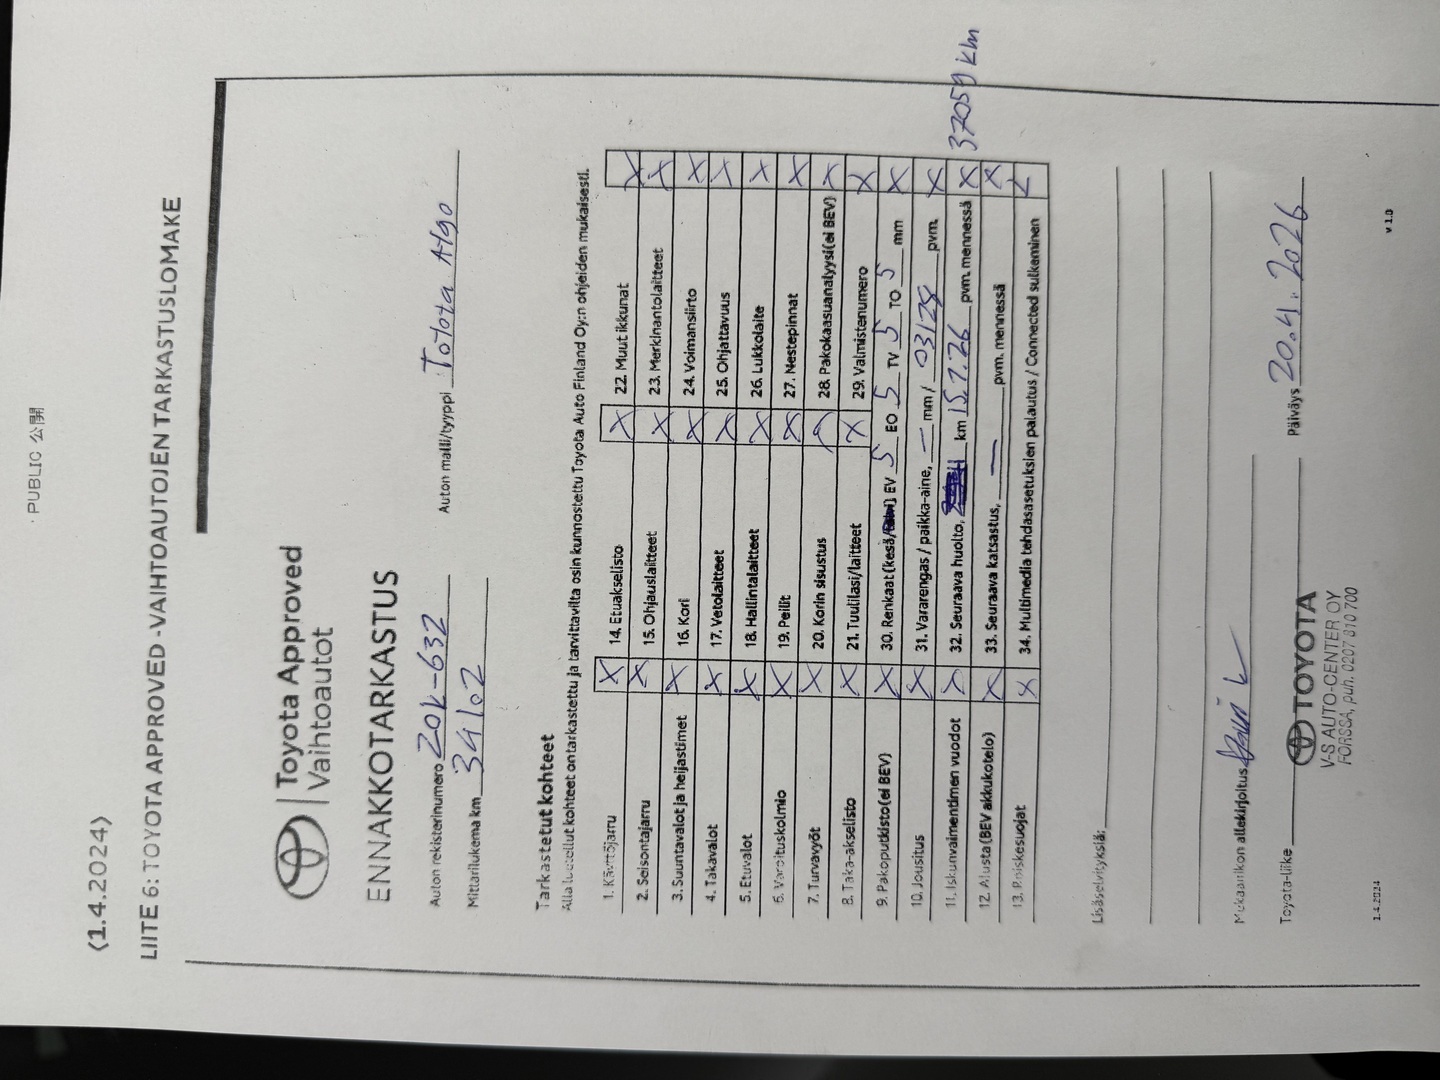 PUBLIC 公開
(1.4.2024)
LIITE 6: TOYOTA APPROVED -VAIHTOAUTOJEN TARKASTUSLOMAKE
Toyota Approved
Vaihtoautot
ENNAKKOTARKASTUS
Auton rekisterinumero ZOK-632 Auton malli/tyyppi Toyota Aygo
Mittarilukema km 34102
Tarkastetut kohteet
Alla luetellut kohteet on tarkastettu ja tarvittavilta osin kunnostettu Toyota Auto Finland Oy:n ohjeiden mukaisesti.
1. Käyttöjarru X 14. Etuakselisto X 22. Muut ikkunat X
2. Seisontajarru X 15. Ohjauslaitteet X 23. Merkinantolaitteet X
3. Suuntavalot ja heijastimet X 16. Kori X 24. Voimansiirto X
4. Takavalot X 17. Vetolaitteet X 25. Ohjattavuus X
5. Etuvalot X 18. Hallintalaitteet X 26. Lukkolaite X
6. Varoituskolmio X 19. Peilit X 27. Nestepinnat X
7. Turvavyöt X 20. Korin sisustus X 28. Pakokaasuanalyysi (ei BEV) X
8. Taka-akselisto X 21. Tuulilasi/laitteet X 29. Valmistenumero X
9. Pakoputkisto (ei BEV) X 30. Renkaat (kesä/ EV 5 EO 5 TV 5 TO 5 mm X
10. Jousitus X 31. Vararengas / paikka-aine, — mm / 03/28 pvm. X
11. Iskunvaimentimen vuodot X 32. Seuraava huolto, km 15.7.26 pvm. mennessä X 37059 km
12. Alusta (BEV akkukotelo) X 33. Seuraava katsastus, — pvm. mennessä X
13. Roiskesuojat X 34. Multimedia tehdasasetuksien palautus / Connected sulkeminen X
Lisäselvityksiä:
Mekaanikon allekirjoitus
Toyota-liike Päiväys 20.4.2026
TOYOTA
V-S AUTO-CENTER OY
FORSSA, puh. 0207 810 700
1.4.2024 v 1.0